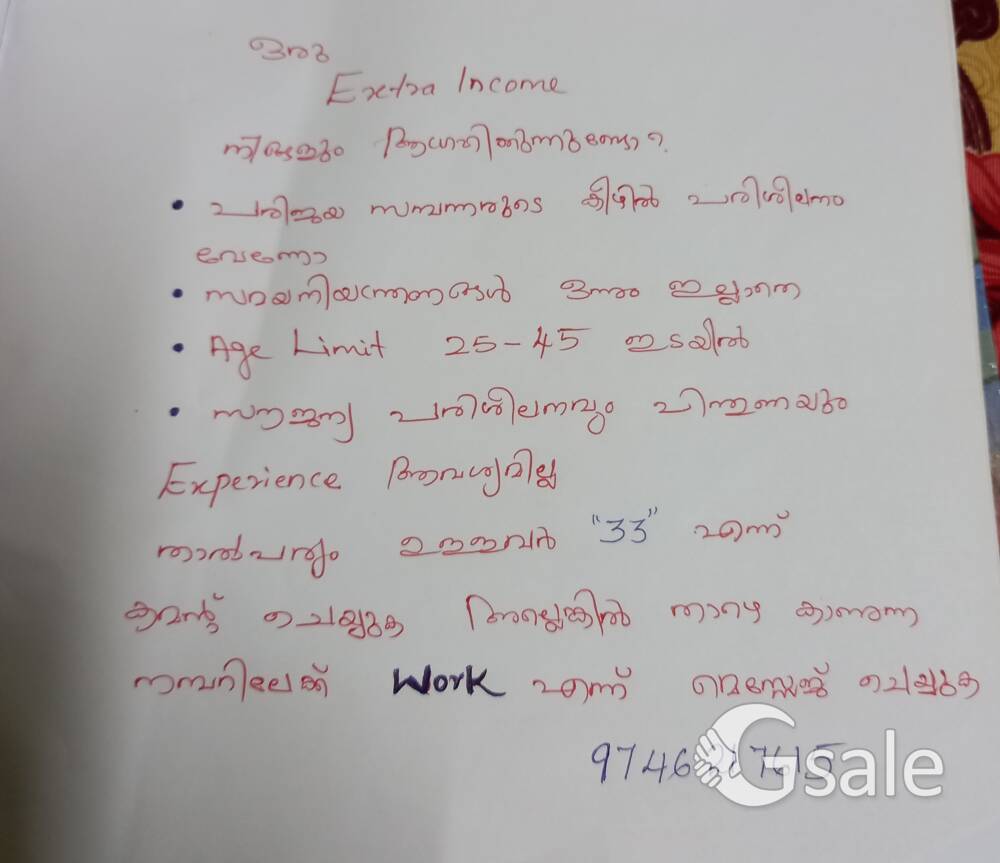 ഒരു
Extra Income
നിങ്ങളും ആഗ്രഹിക്കുന്നുണ്ടോ?
• പരിചയ സമ്പന്നരുടെ കീഴിൽ പരിശീലനം
വേണോ
• സമയനിയന്ത്രണങ്ങൾ ഒന്നും ഇല്ലാതെ
• Age Limit 25-45 ഇടയിൽ
• സൗജന്യ പരിശീലനവും പിന്തുണയും
Experience ആവശ്യമില്ല
താൽപര്യം ഉള്ളവർ "33" എന്ന്
കമന്റ് ചെയ്യുക അല്ലെങ്കിൽ താഴെ കാണുന്ന
നമ്പറിലേക്ക് Work എന്ന് മെസ്സേജ് ചെയ്യുക
Gsale